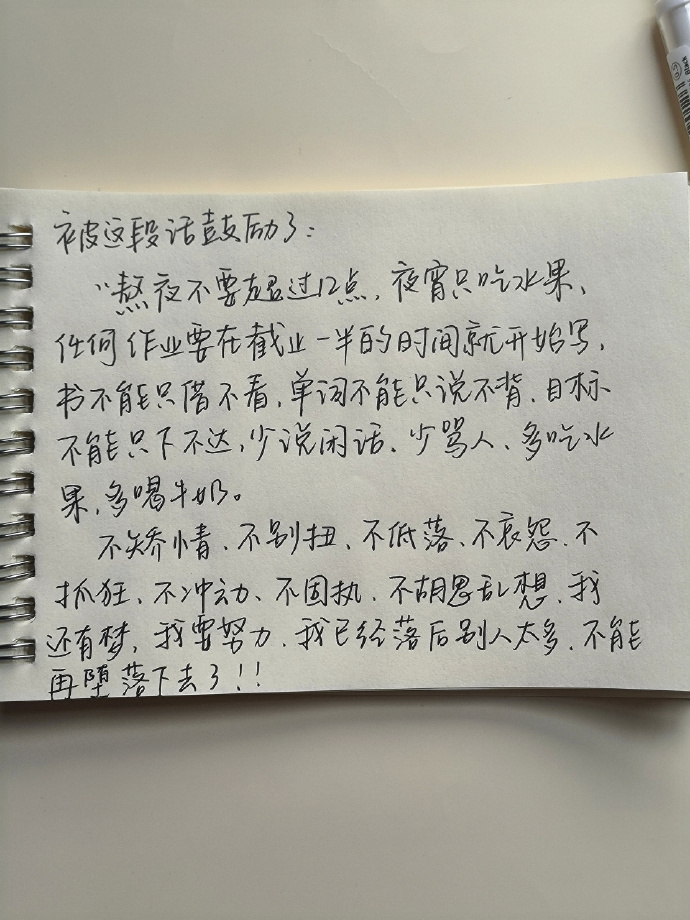 被这段话鼓励了:
“熬夜不要超过12点,夜宵只吃水果,
任何作业要在截止一半的时间就开始写,
书不能只借不看,单词不能只说不背,目标
不能只下不达,少说闲话、少骂人、多吃水
果,多喝牛奶。
不矫情、不别扭、不低落、不哀怨、不
抓狂、不冲动、不固执、不胡思乱想,我
还有梦,我要努力,我已经落后别人太多,不能
再堕落下去了!!
Black